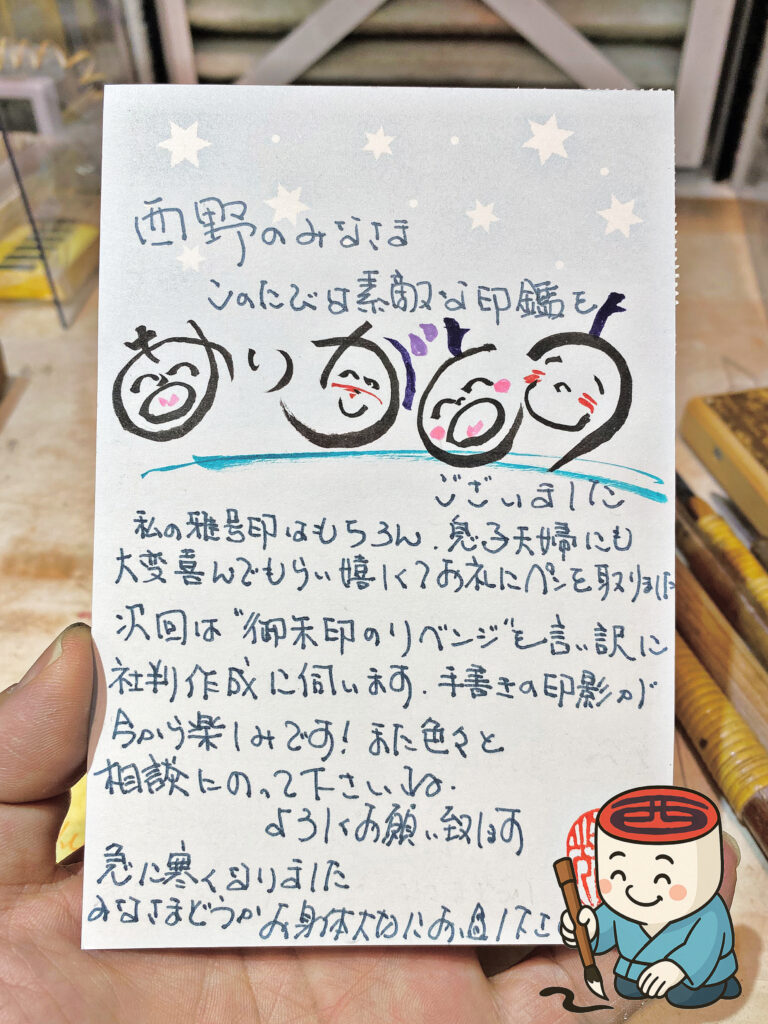 西野のみなさま
このたびは素敵な印鑑を
ありがとう
ございました
私の雅号印はもちろん、息子夫婦にも
大変喜んでもらい嬉しくてお礼にペンを取りました
次回は"御朱印のリベンジ"を言い訳に
社判作成に伺います。手書きの印影が
今から楽しみです！また色々と
相談にのって下さいね。
よろしくお願い致します
急に寒くなりました
みなさまどうかお身体大切にお過し下さ
西